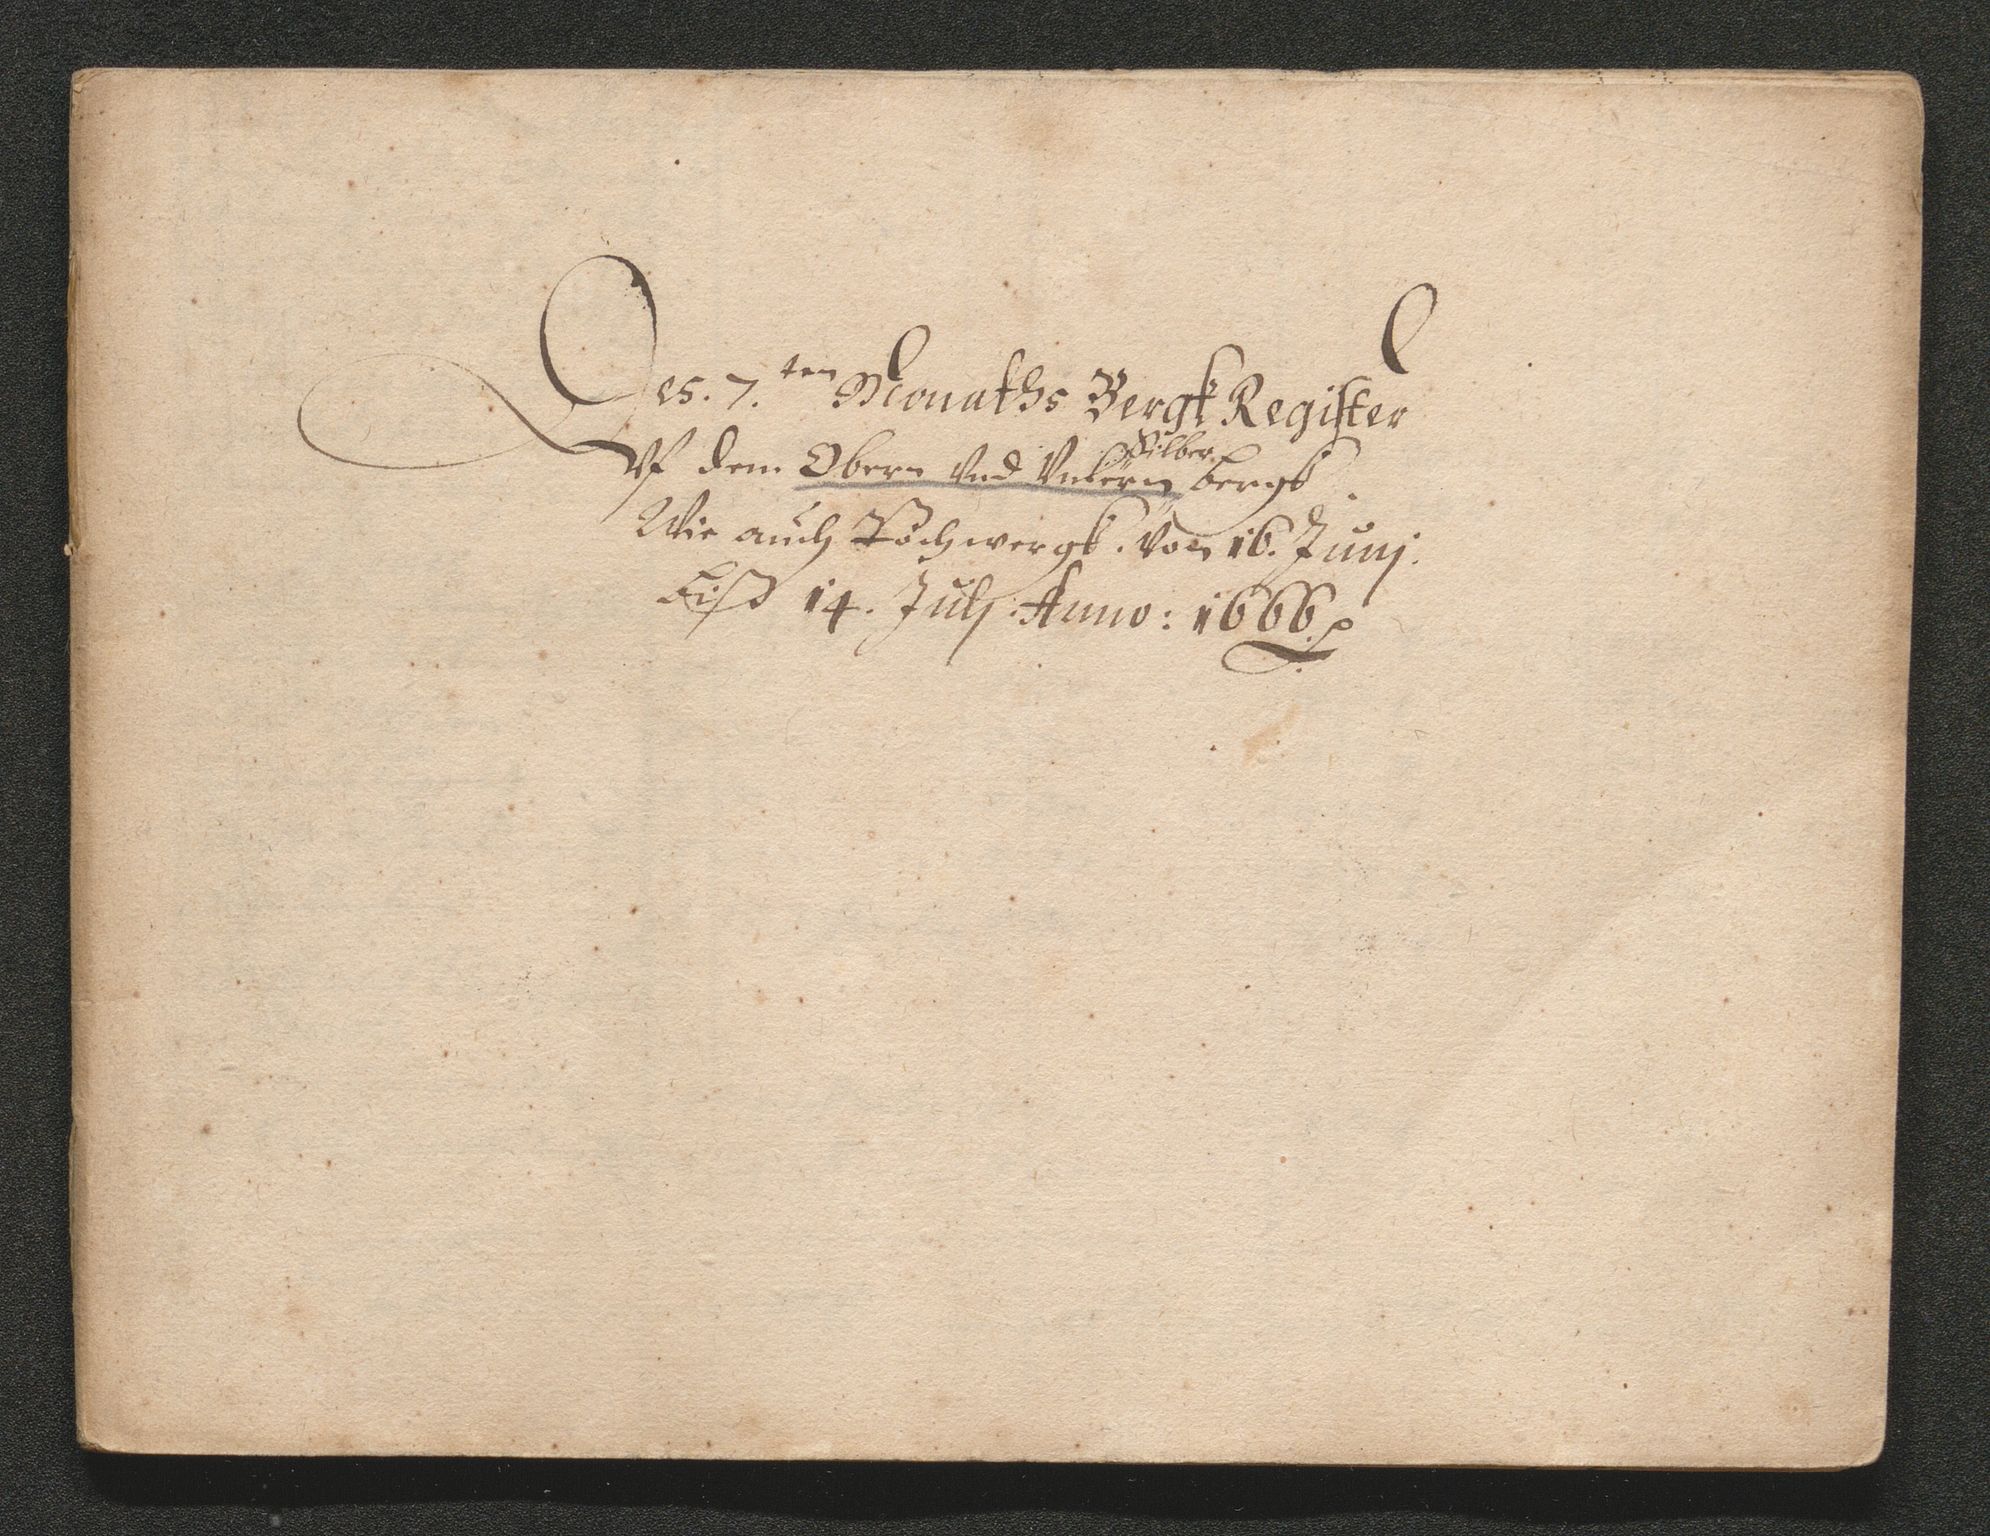 Des. 7.ten Monaths Bergk Register
Vf dem Obern vnd Vntern Silber bergk.
Wie auch Pochwergk. von 16. Junj.
biß 14. Julj. Anno: 1666.